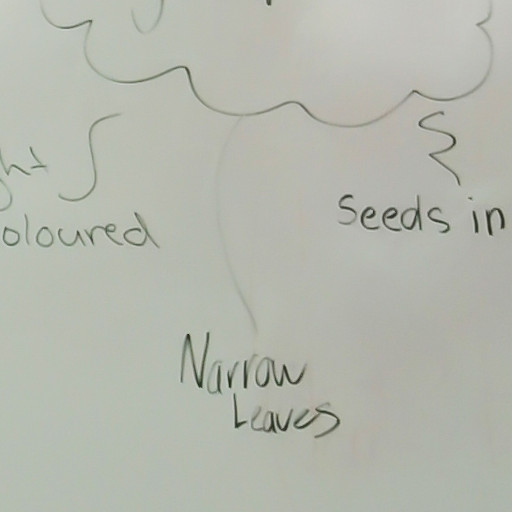 ght
oloured
Seeds in
Narrow
Leaves